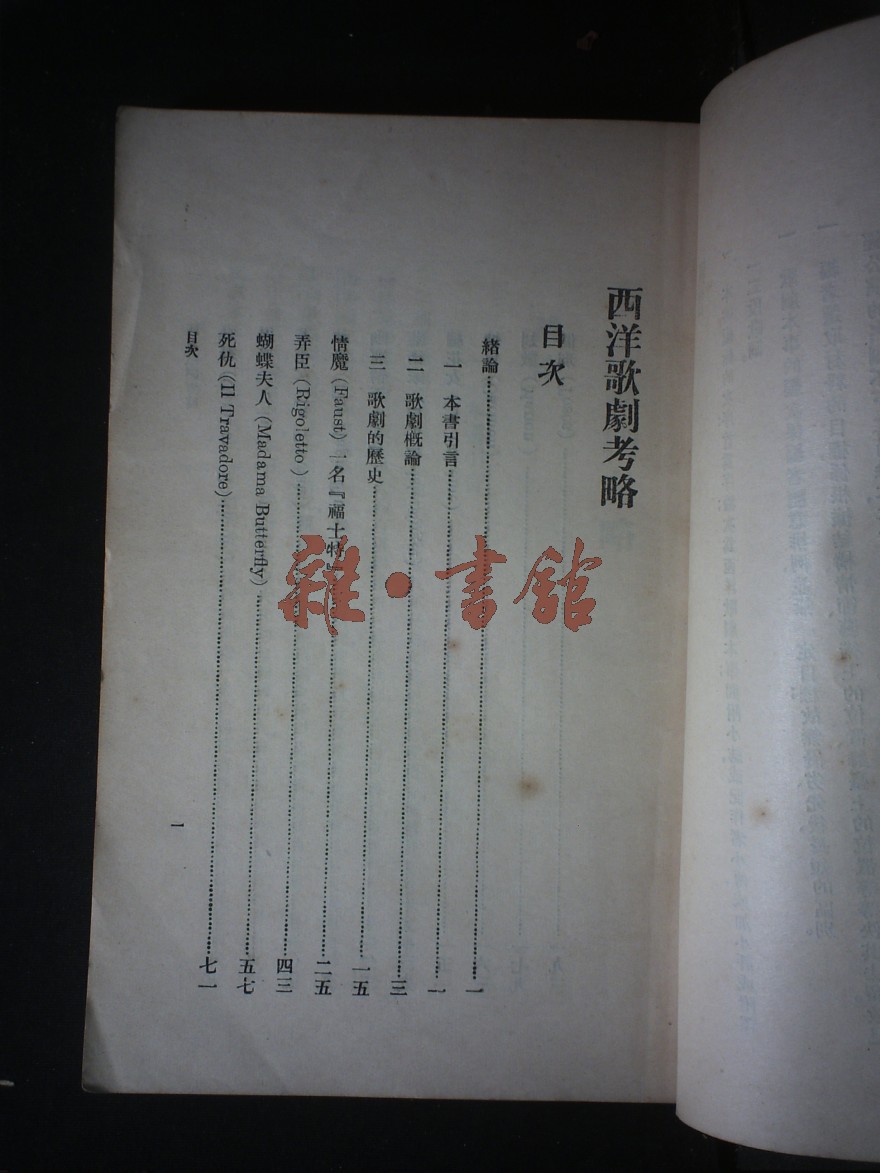 西洋歌劇考略
目次
緒論…一
一 本書引言…一
二 歌劇概論…三
三 歌劇的歷史…一五
情魔(Faust)一名『福士特』…二五
弄臣(Rigoletto)…四三
蝴蝶夫人(Madama Butterfly)…五七
死仇(Il Travadore)…七一
目次
一
雜·書館